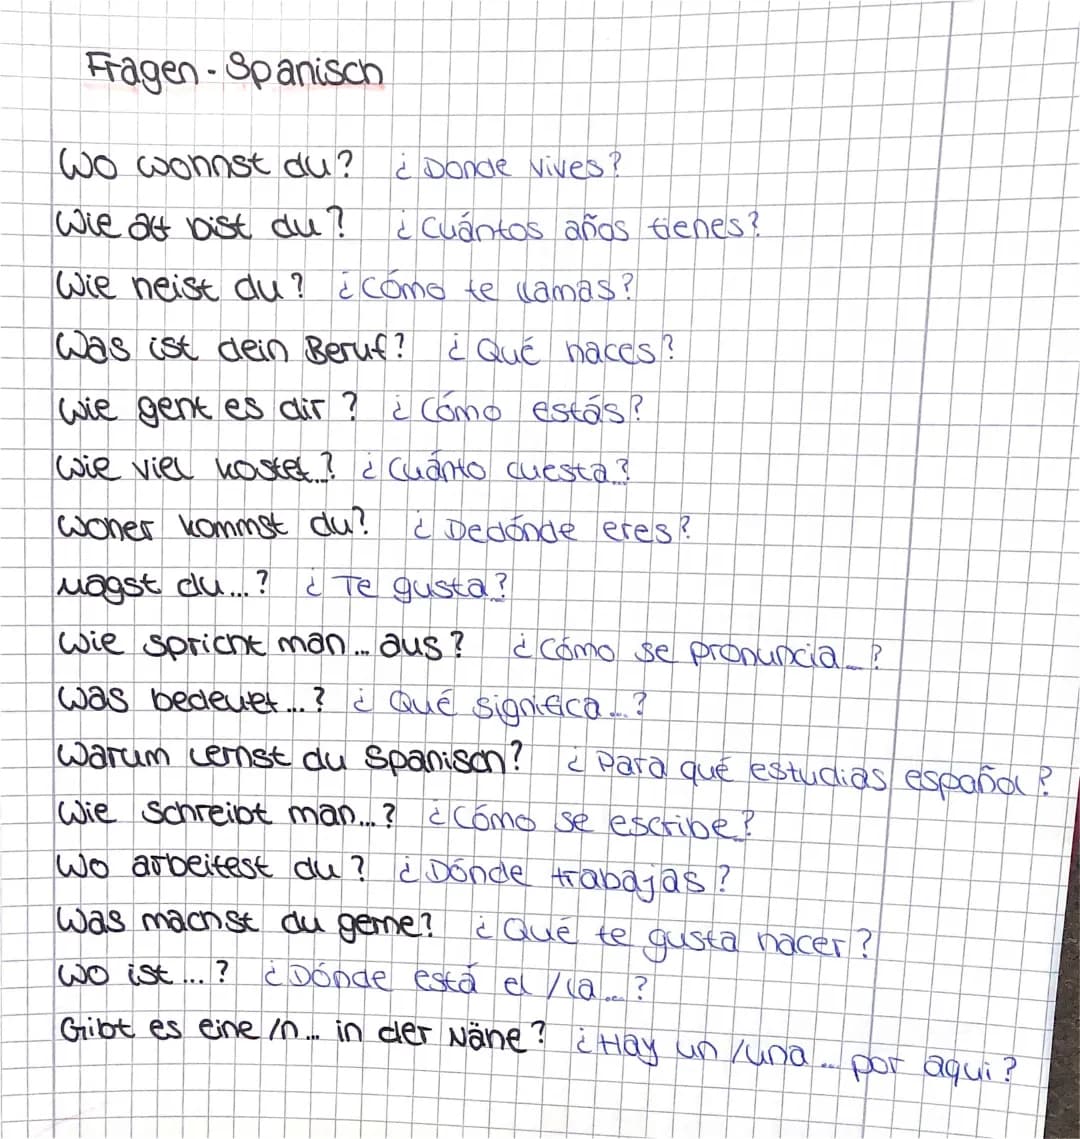 Fragen - Spanisch
Wo wohnst du? ¿Donde vives?
Wie alt bist du? ¿Cuántos años tienes?
Wie heist du? ¿Cómo te llamas?
Was ist dein Beruf? ¿Qué haces?
Wie geht es dir? ¿Cómo estás?
Wie viel kostet...? ¿Cuánto cuesta...?
Woher kommst du? ¿Dedónde eres?
Magst du...? ¿Te gusta?
Wie spricht man... aus? ¿Cómo se pronuncia...?
Was bedeuet...? ¿Qué significa...?
Warum lernst du Spanisch? ¿Para qué estudias español?
Wie schreibt man...? ¿Cómo se escribe?
Wo arbeitest du? ¿Dónde trabajas?
Was machst du gerne? ¿Qué te gusta hacer?
Wo ist...? ¿Dónde está el/la...?
Gibt es eine/n... in der Nähe? ¿Hay un/una... por aqui?